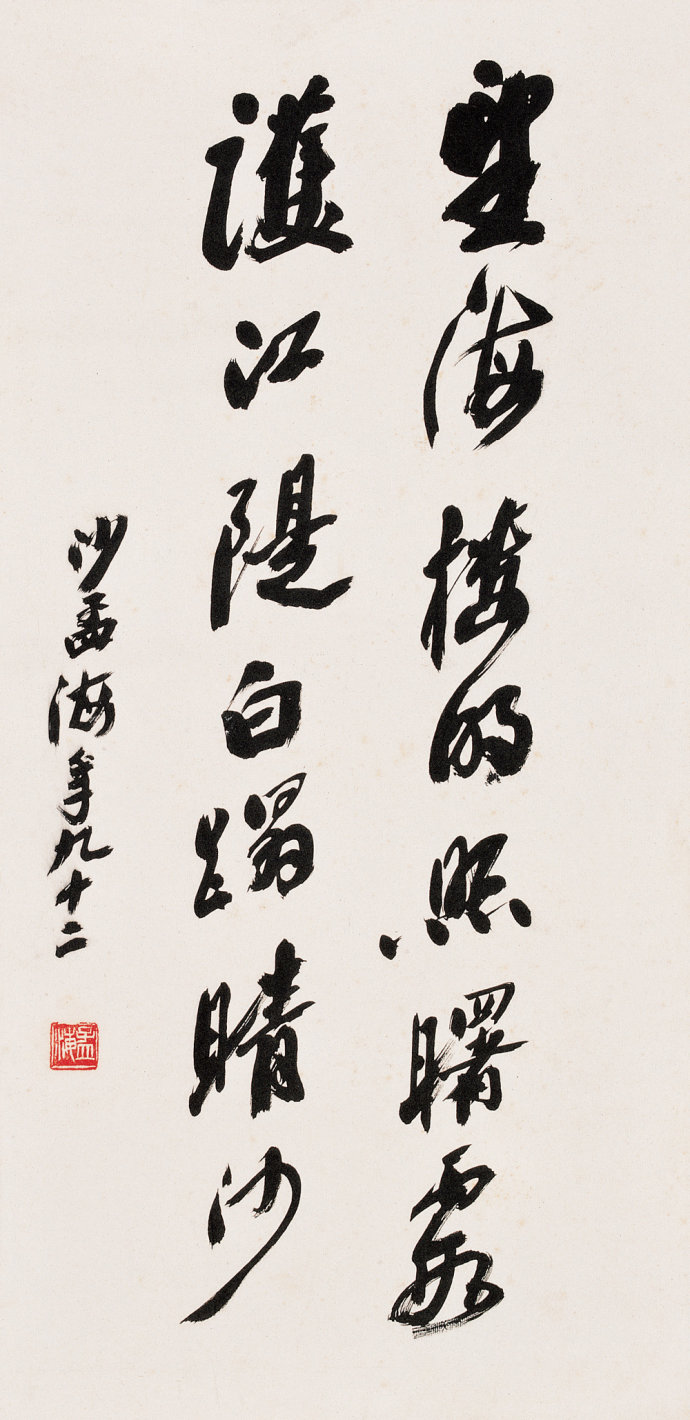 望海楼明照曙霞
護江隄白蹋晴沙
沙孟海年九十二
孟海